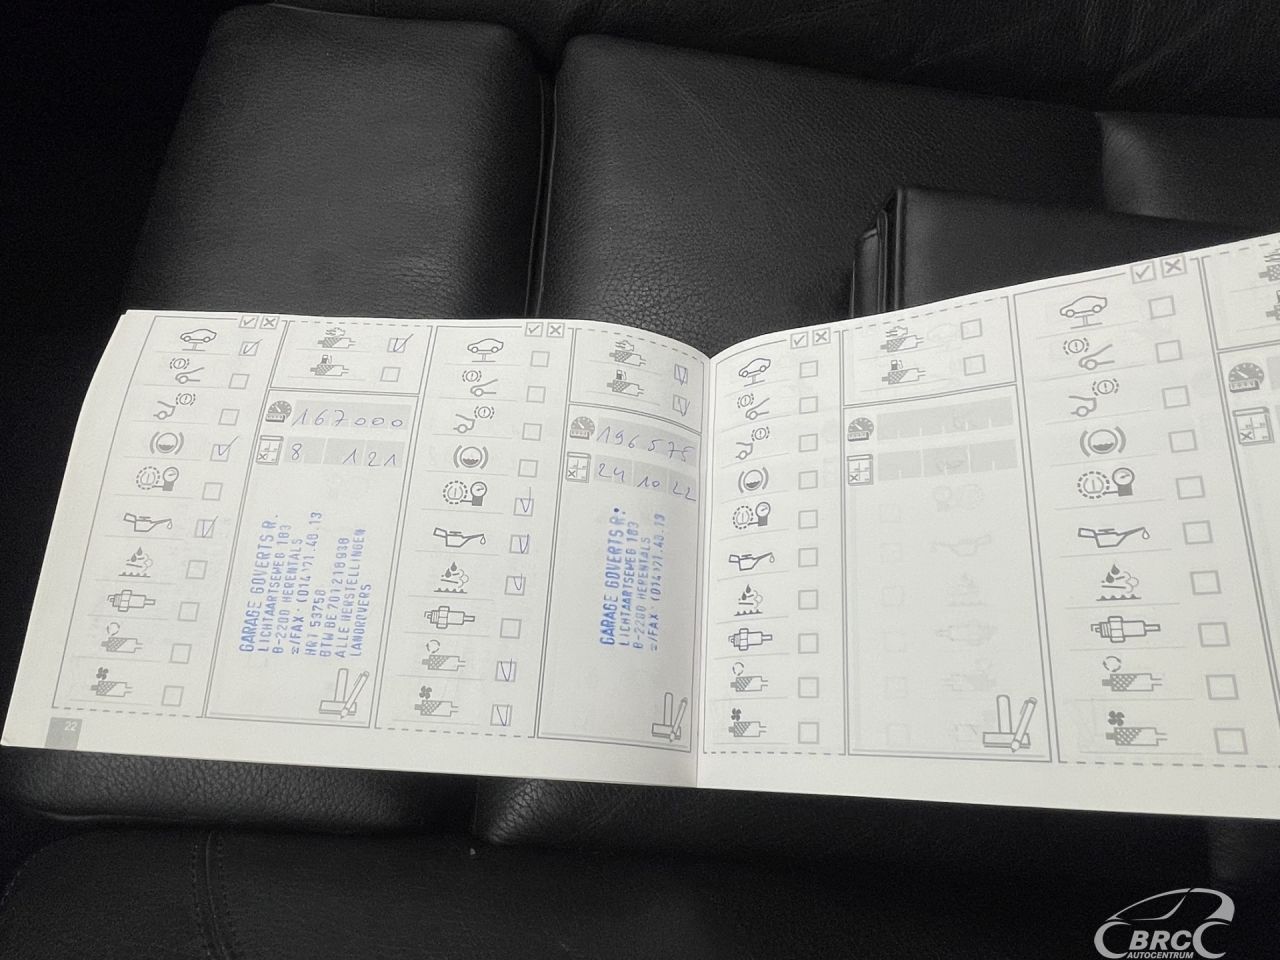 167000
8 1 21
GARAGE GOVERTS R.
LICHTAARTSEWEG 183
B-2200 HERENTALS
/FAX (014)71.40.13
HRT 53758
BTW BE 701218938
ALLE HERSTELLINGEN
LANDROVERS
196575
24 10 22
GARAGE GOVERTS R.
LICHTAARTSEWEG 183
B-2200 HERENTALS
/FAX (014)71.40.13
22
BRC
AUTOCENTRUM